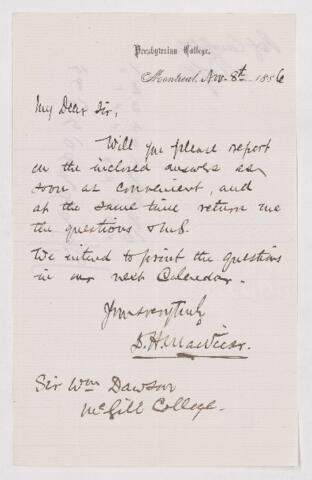 Presbyterian College,
Montreal, Nov. 8th 1886
My Dear Sir,
Will you please report
on the inclosed answers as
soon as convenient, and
at the same time return me
the questions & MS.
We intend to print the questions
in our next Calendar.
Yours very truly
D. H. MacVicar.
Sir Wm Dawson
McGill College.